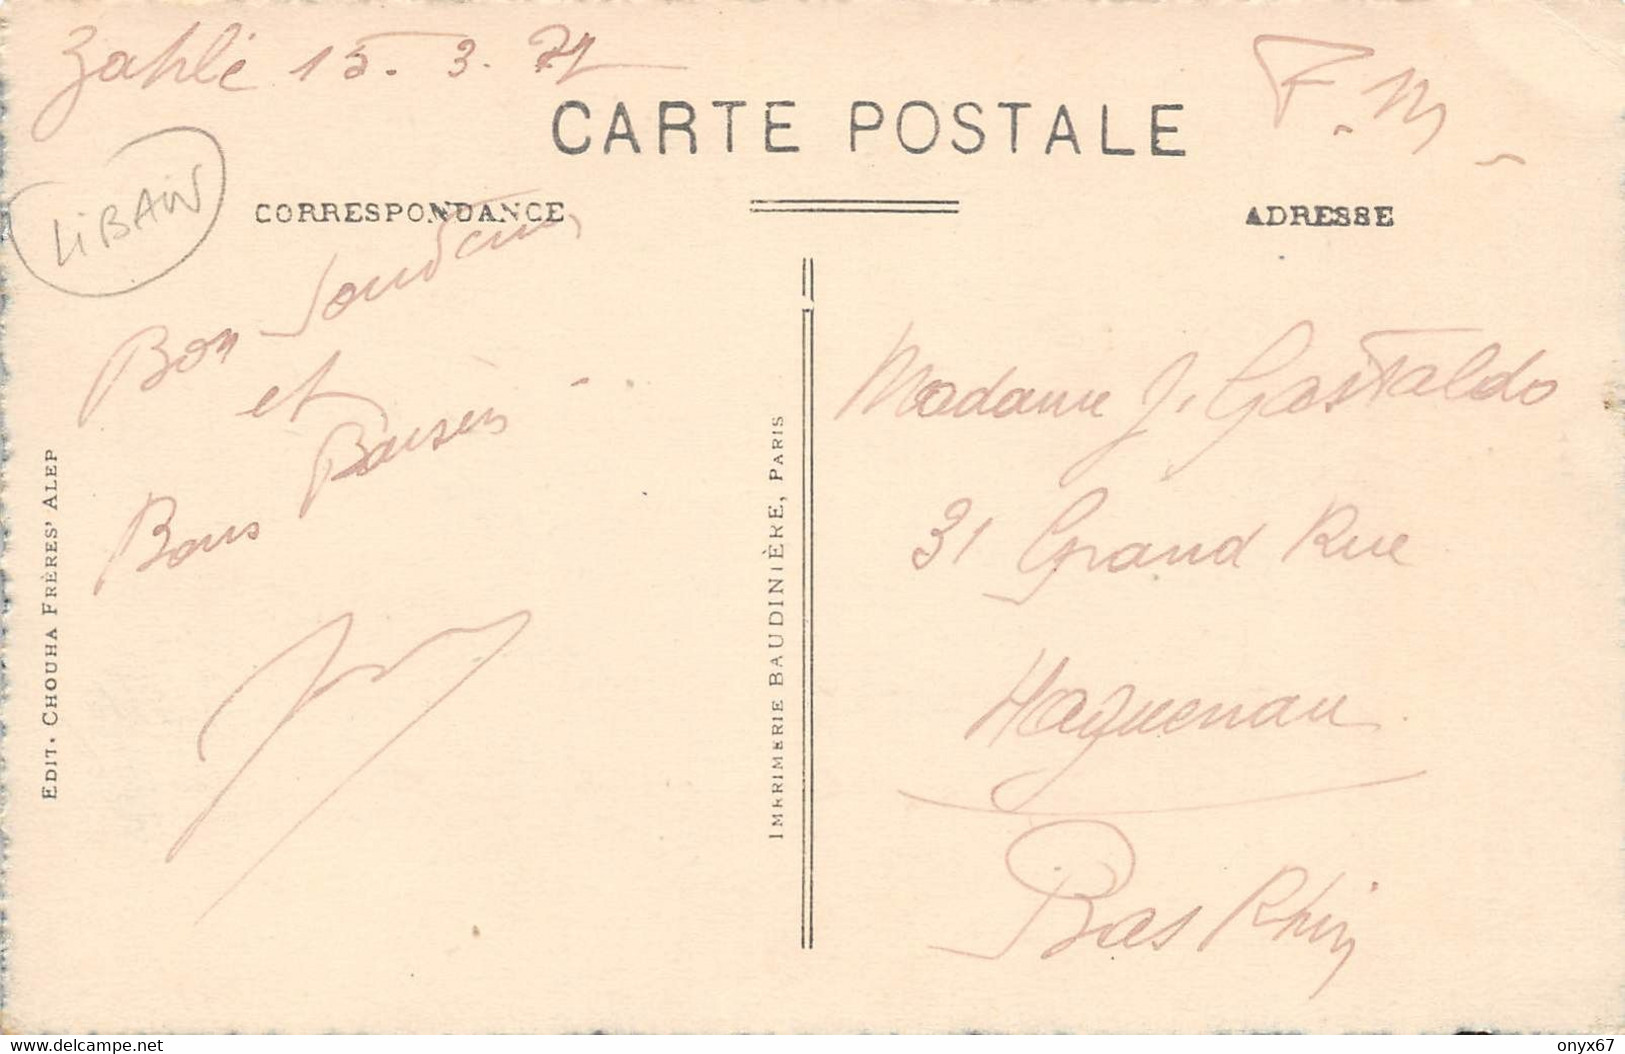 Zahlé 15.3.
F.M
CARTE POSTALE
LiBAN
CORRESPONDANCE
ADRESSE
Bon Souvenir
et
Bons Baisers
Madame J. Gastaldo
31 Grand Rue
Haguenau
Bas Rhin
EDIT. CHOUHA FRÈRES' ALEP
IMPRIMERIE BAUDINIÈRE, PARIS
https://www.delcampe.net
onyx67